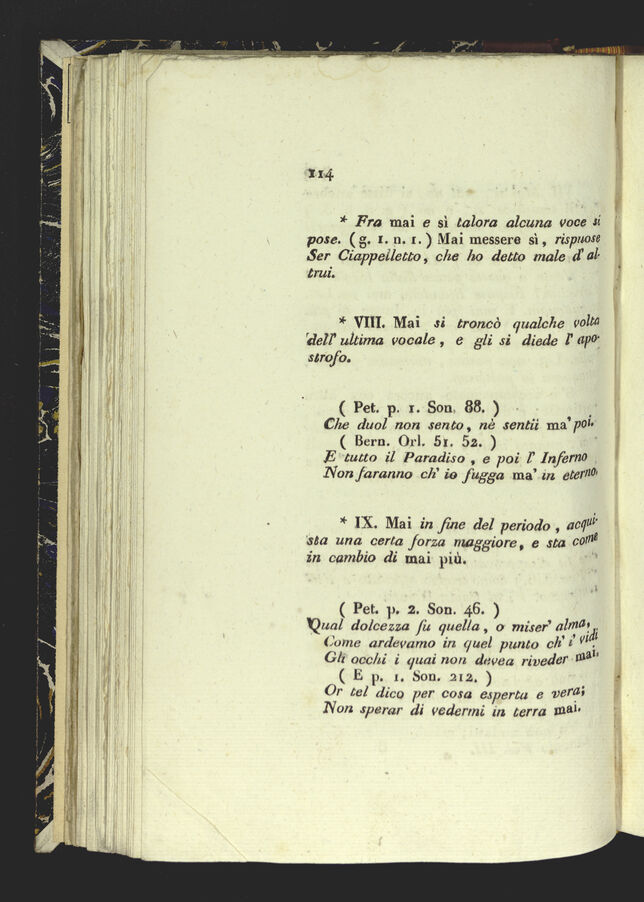 114
* Fra mai e sì talora alcuna voce si
pose. ( g. 1. n. 1. ) Mai messere sì, rispuose
Ser Ciappelletto, che ho detto male d' al-
trui.
* VIII. Mai si troncò qualche volta
dell' ultima vocale, e gli si diede l' apo-
strofo.
( Pet. p. 1. Son. 88. )
Che duol non sento, nè sentii ma' poi.
( Bern. Orl. 51. 52. )
E tutto il Paradiso, e poi l' Inferno
Non faranno ch' io fugga ma' in eterno.
* IX. Mai in fine del periodo, acqui-
sta una certa forza maggiore, e sta come
in cambio di mai più.
( Pet. p. 2. Son. 46. )
Qual dolcezza fu quella, o miser' alma,
Come ardevamo in quel punto ch' i' vidi
Gli occhi i quai non devea riveder mai.
( E p. 1. Son. 212. )
Or tel dico per cosa esperta e vera;
Non sperar di vedermi in terra mai.